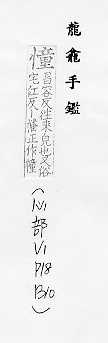 龍龕手鑑
憧
昌容反往來皃也又俗
宅江反丨㦬正作憧
(心部V1
P18
B10)